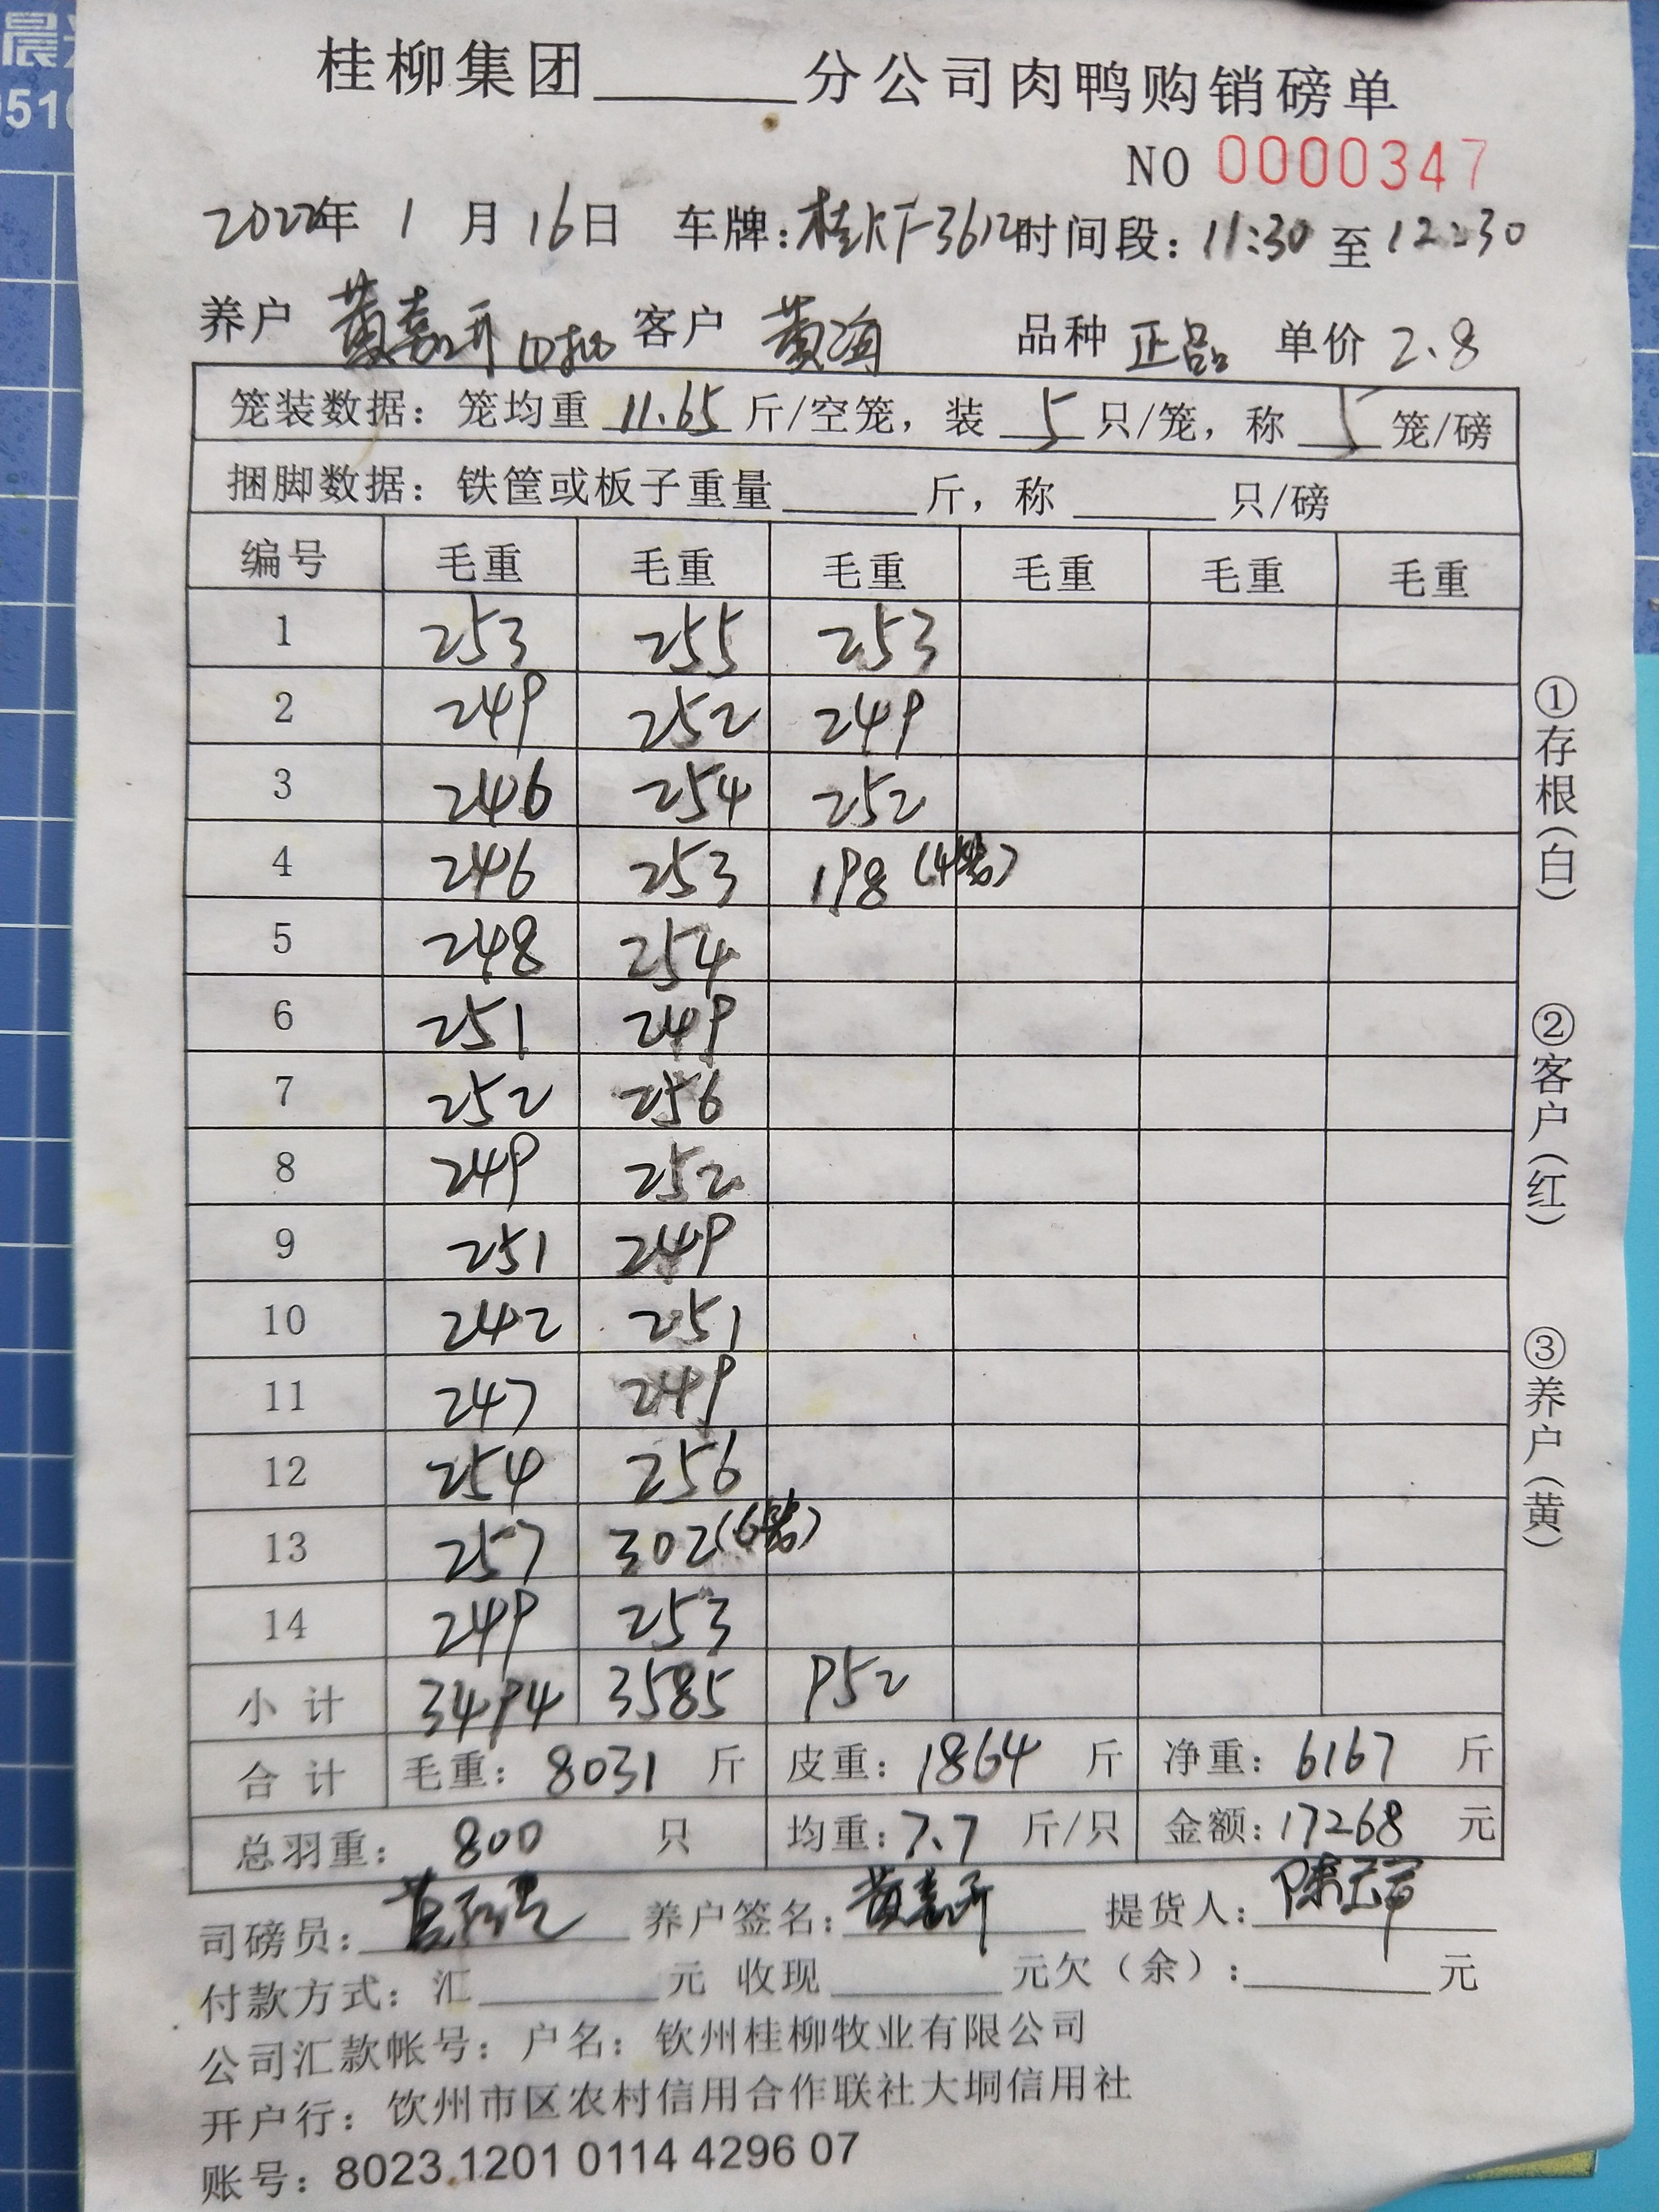 晨
0510
桂柳集团______分公司肉鸭购销磅单
NO 0000347
2022年 1 月 16日 车牌:桂KF3612 时间段: 11:30 至 12:30
养户 黄嘉开 客户 黄海 品种 正品 单价 2.8
笼装数据: 笼均重 11.65 斤/空笼, 装 5 只/笼, 称 5 笼/磅
捆脚数据: 铁筐或板子重量______斤, 称______只/磅
编号 毛重 毛重 毛重 毛重 毛重 毛重
1 253 255 253
2 249 252 249
3 246 254 252
4 246 253 198 (4笼)
5 248 254
6 251 249
7 252 256
8 249 252
9 251 249
10 242 251
11 247 249
12 254 256
13 257 302 (6笼)
14 249 253
小计 3494 3585 952
合计 毛重: 8031 斤 皮重: 1864 斤 净重: 6167 斤
总羽重: 800 只 均重: 7.7 斤/只 金额: 17268 元
司磅员: 养户签名: 黄嘉开 提货人:
付款方式: 汇______元 收现______元欠(余):______元
公司汇款帐号: 户名: 钦州桂柳牧业有限公司
开户行: 钦州市区农村信用合作联社大垌信用社
账号: 8023 1201 0114 4296 07
①存根(白)
②客户(红)
③养户(黄)